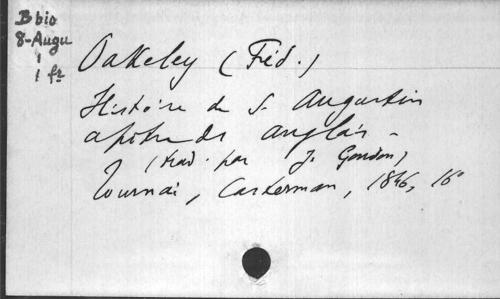 B bio
8-Augu
1
1 fr
Oakeley (Fréd.)
Histoire de S. Augustin
apôtre des anglais -
(trad. par J. Gondon)
Tournai, Casterman, 1846, 16°